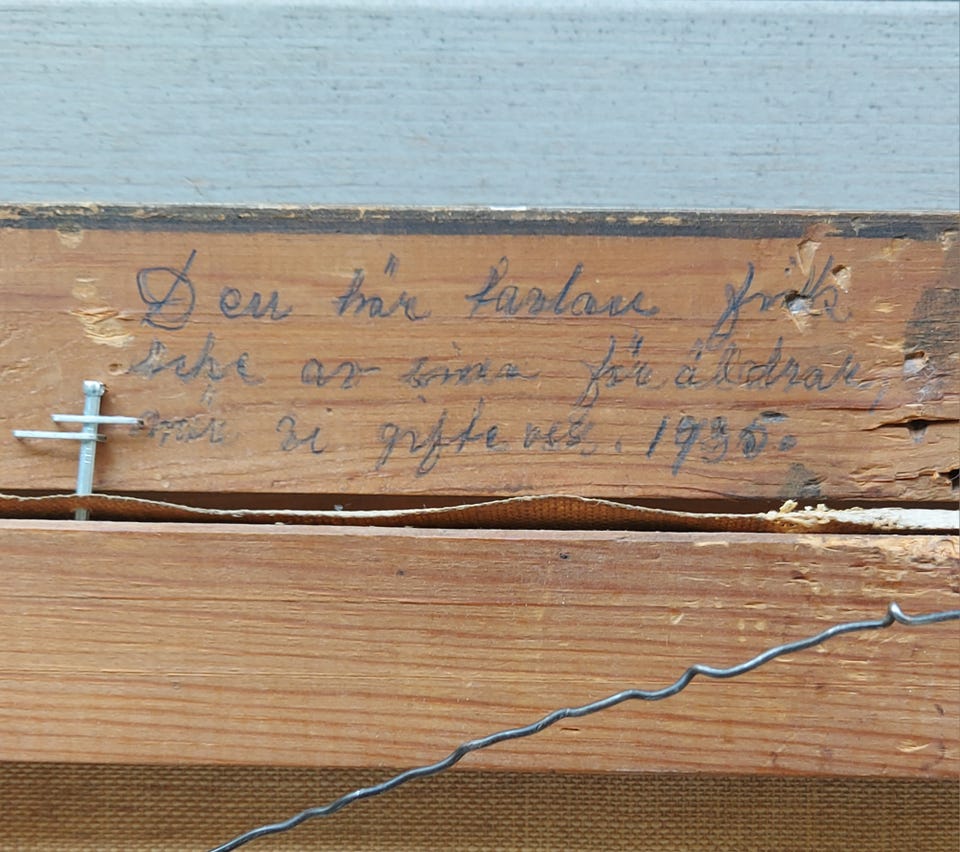 Den här tavlan fick
av sina för äldrar,
när vi gifte oss. 1935.